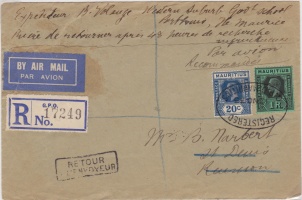 Expéditeur B. Volange Western Suburb Govt school
Port Louis, Ile Maurice
Prière de retourner après 43 heures de recherche
infructueuse
Par avion
Recommandée
BY AIR MAIL
PAR AVION
R G.P.O.
No. 17249
MAURITIUS
20c
MAURITIUS
1R
REGISTERED
RETOUR
A L'ENVOYEUR
B. Narbert
St Denis
Reunion